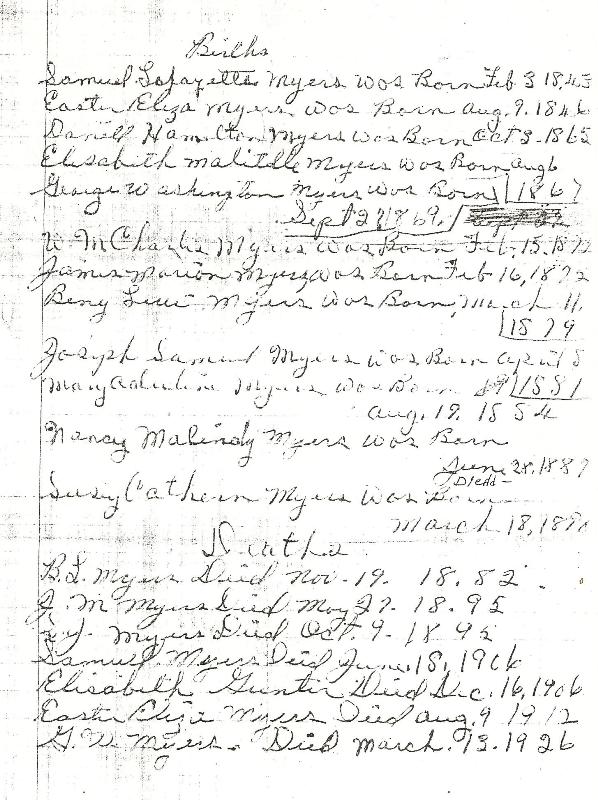 Births
Samuel Lafayette Myers Was Born Feb 3 1843
Easter Eliza Myers Was Born Aug. 9. 1846
Daniell Hamilton Myers Was Born Oct 3. 1865
Elisabith Malitdle Myers Was Born Aug 6
George Washington Myers Was Born 1867
Sept 27 1869.
W. M Charlis Myers Was Born Feb. 15. 1872
James Marion Myers Was Born Feb 16, 1872
Beny Myers Was Born, March 11.
1879
Joseph Samuel Myers Was Born April 8
Mary Myers Was Born 1881
Aug. 19. 1884
Nancy Malindy Myers Was Born
June 28, 1887
Diedd
Susy Cathern Myers Was Born
March 18, 
Deaths
B. L. Myers Died Nov. 19. 18.82.
J. M Myers Died May 27. 18.95
Myers Died Oct. 9. 1895
Samuel Myers Died June, 18, 1906
Elisabeth Gunter Died Dec. 16, 1906
Easter Eliza Myers Died Aug. 9 1912
G. W Myers. Died March. 13. 1926